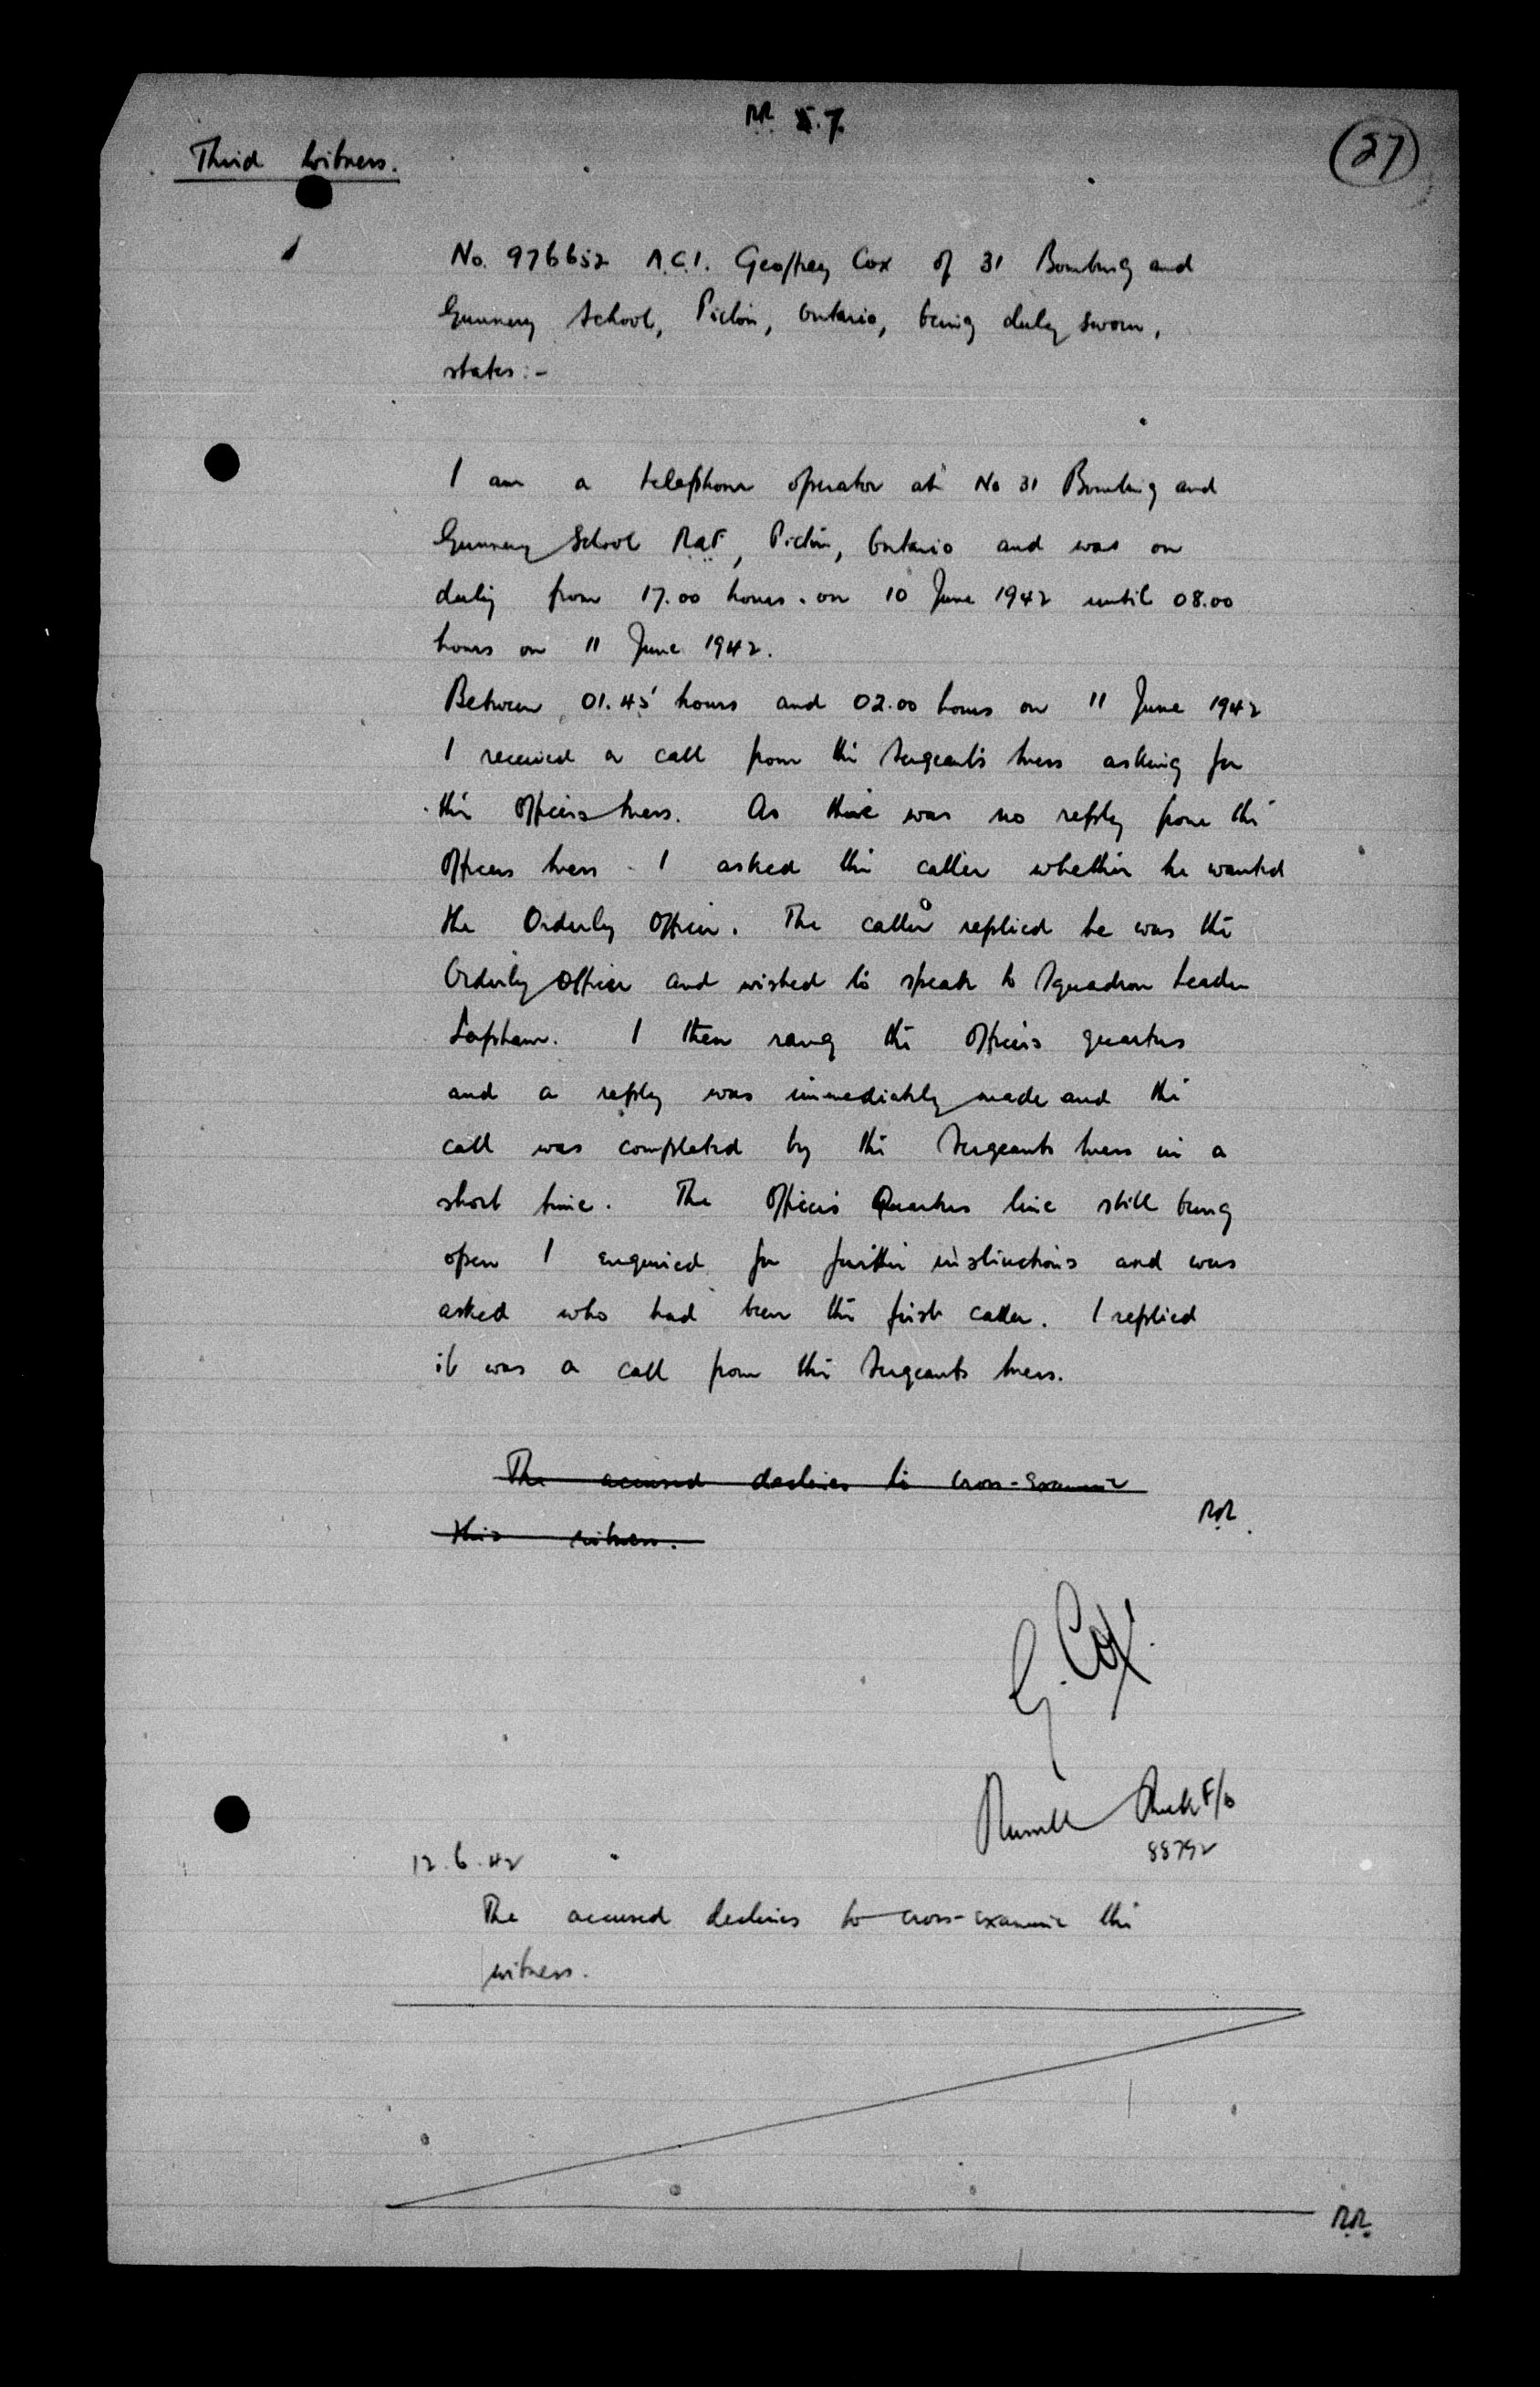 RR 7.
(27)
Third Witness.
No. 976652 A.C.1. Geoffrey Cox of 31 Bombing and
Gunnery School, Picton, Ontario, being duly sworn,
states:-
I am a telephone operator at No 31 Bombing and
Gunnery School RAF, Picton, Ontario and was on
duty from 17.00 hours. on 10 June 1942 until 08.00
hours on 11 June 1942.
Between 01.45 hours and 02.00 hours on 11 June 1942
I received a call from the Sergeants Mess asking for
the Officers Mess. As there was no reply from the
Officers Mess I asked the caller whether he wanted
the Orderly Officer. The caller replied he was the
Orderly Officer and wished to speak to Squadron Leader
Lapham. I then rang the Officers quarters
and a reply was immediately made and the
call was completed by the Sergeants Mess in a
short time. The Officers Quarters line still being
open I enquired for further instructions and was
asked who had been the first caller. I replied
it was a call from the Sergeants Mess.
The accused declines to cross-examine
this witness.
RR.
G. Cox.
Russell F/O
88792
12.6.42
The accused declines to cross-examine this
witness.
RR.